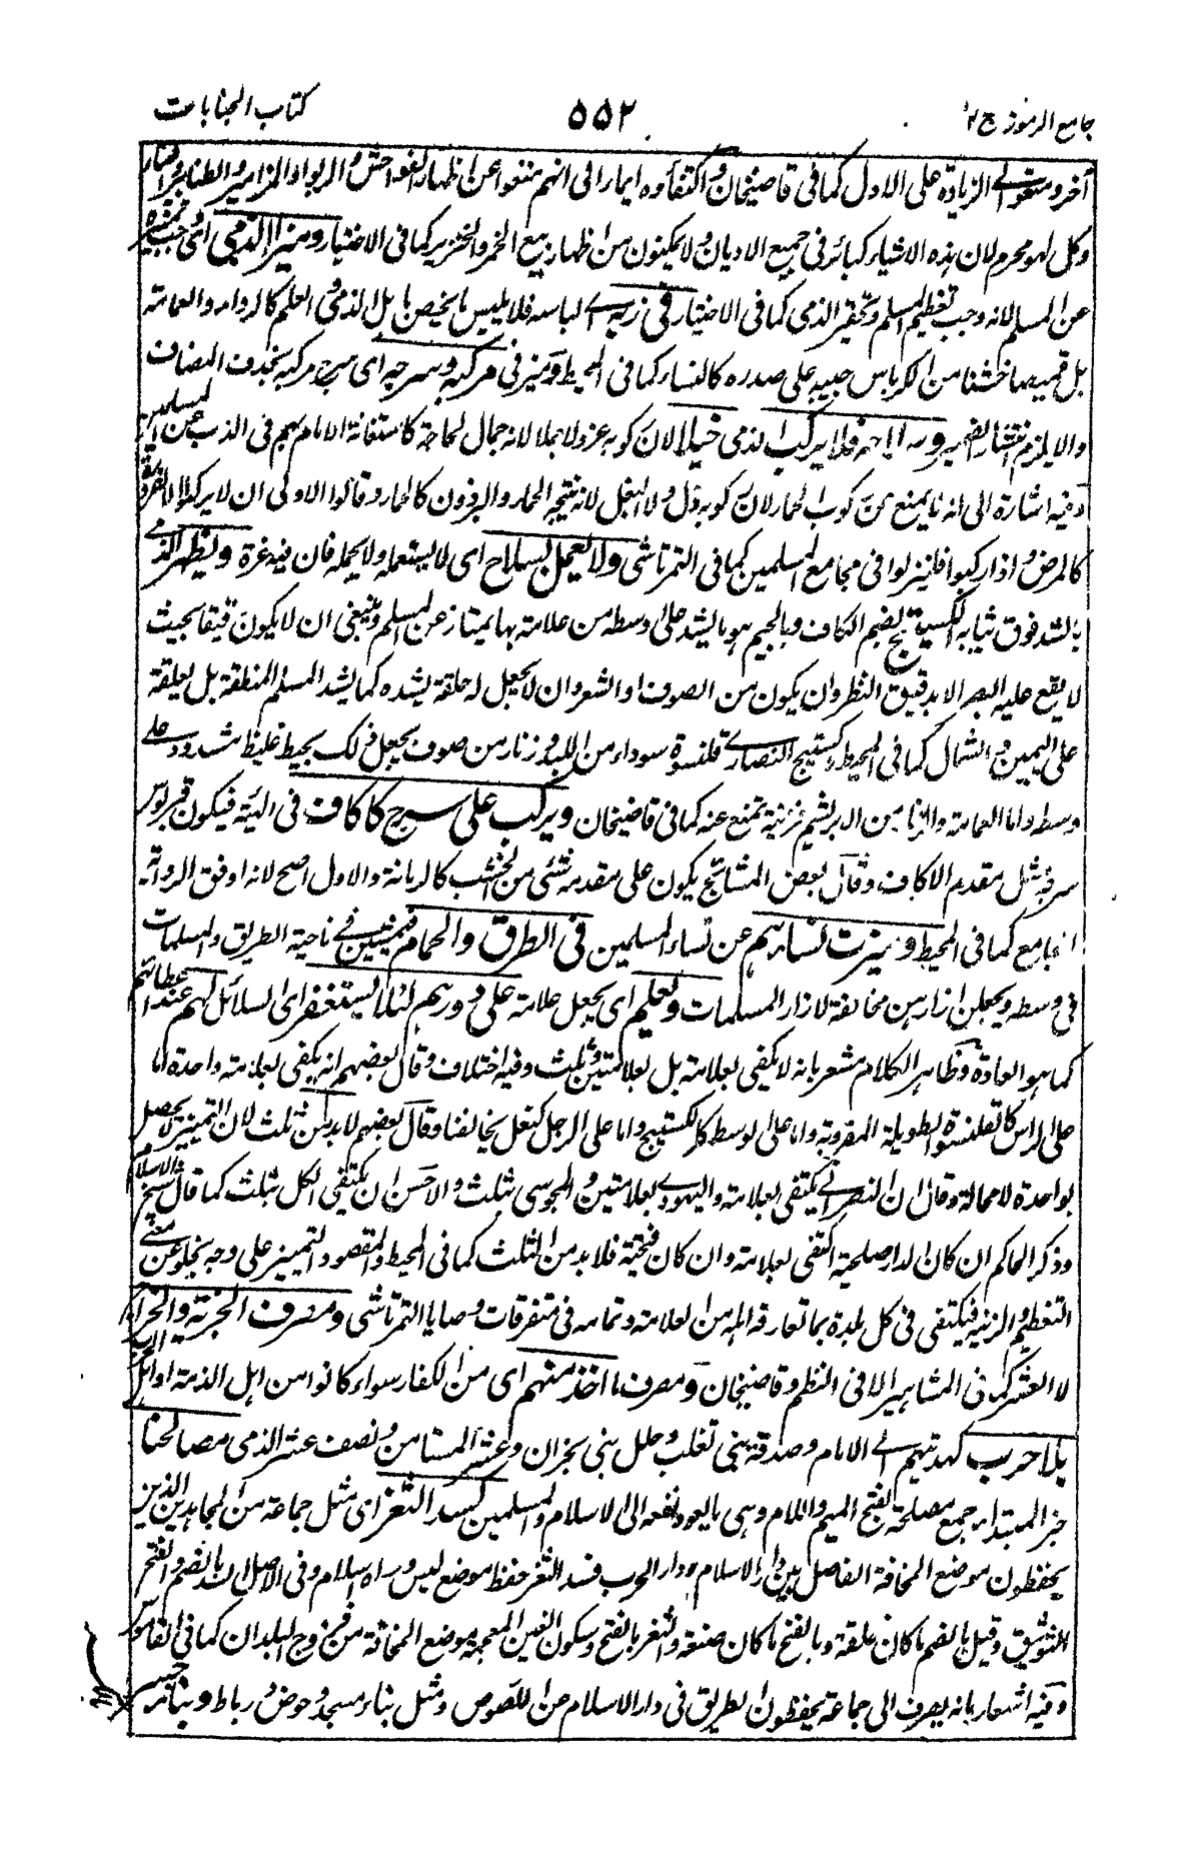 جامع الرموز ج ٢ ٥٥٢ كتاب الجنايات
آخر ومنعوا الزيادة على الاول كما فى قاضيخان واكتفاؤه ايماء الى انهم منعوا عن اظهار الفواحش والربوا والمزامير والطنابير والغناء
وكل لهو محرم لان هذه الاشياء كبائر فى جميع الاديان ولا يمكنون من اظهار بيع الخمر والخنزير كما فى الاختيار وميز الذمى اى وجب تمييزه
عن المسلم لانه وجب تعظيم المسلم وتحقير الذمى كما فى الاختيار فى زيه اى لباسه فلا يلبس ما يخص باهل الذمى العلم كالرداء والعمامة
بل قميصا خشنا من الكرباس جيبه على صدره كالنساء كما فى المحيط وميز فى مركبه وسرجه اى سرج مركبه بحذف المضاف
والا يلزم انتشار الضمير وسلاحه فلا يركب الذمى خيلا لان ركوبه عز ولا جملا لانه جمال لحاجة كاستعانة الامام بهم فى الذب عن المسلمين
وفيه اشارة الى انه لا يمنع عن ركوب الحمار لان ركوبه ذل ولا البغل لانه نتيجة الحمار والبرذون كالحمار وقالوا الاولى ان لا يركبوا الا لضرورة
كالمرض واذا ركبوا فلينزلوا فى مجامع المسلمين كما فى التمرتاشى ولا يعمل بسلاح اى لا يستعمله ولا يحمله فان فيه عزة ويظهر الذمى
بالشد فوق ثيابه الكستيج بضم الكاف وبالجيم هو ما يشد على وسطه من علامة بها يمتاز عن المسلم وينبغى ان لا يكون رقيقا بحيث
لا يقع عليه البصر الا بدقيق النظر وان يكون من الصوف او الشعر وان لا يجعل له حلقة يشده كما يشد المسلم المنطقة بل يعلقه
على اليمين والشمال كما فى المحيط وكستيج النصارى قلنسوة سوداء من اللبد وزنار من صوف يجعل ذلك بخيط غليظ مشدود على
وسطه واما العمامة والزنار من الابريشم فزينة تمنع عنه كما فى قاضيخان ويركب على سرج كاكاف فى الهيئة فيكون قربوس
سرجه مثل مقدم الاكاف وقال بعض المشايخ يكون على مقدمه شئ من الخشب كالرمانة والاول اصح لانه اوفق لرواية
الجامع كما فى المحيط وميزت نساؤهم عن نساء المسلمين فى الطرق والحمام فيمشين فى ناحية الطريق والمسلمات
فى وسطه ويجعلن ازارهن مخالفة لازار المسلمات ويعلم اى يجعل علامة على دورهم لئلا يستغفر اى السائل لهم عند اعطائهم
كما هو العادة وظاهر الكلام مشعر بانه لا يكفى بعلامة بل بعلامتين وثلث وفيه اختلاف وقال بعضهم انه يكفى بعلامة واحدة اما
على الراس كالقلنسوة الطويلة المضروبة واما على الوسط كالكستيج واما على الرجل كنعل يخالفنا وقال بعضهم لا بد من ثلث لان التمييز لا يحصل
بواحدة لا محالة وقال ان النصرانى يكتفى بعلامة واليهودى بعلامتين والمجوسى بثلث والاحسن ان يكتفى الكل بثلث كما قال شيخ الاسلام
وذكر الحاكم ان كان الدار صلحية اكتفى بعلامة وان كان فتحية فلا بد من الثلث كما فى المحيط والمقصود التمييز على وجه يخلو عن معنى
التعظيم والزينة فيكتفى فى كل بلدة بما تعارفه اهله من العلامة وتمامه فى متفرقات وصايا التمرتاشى ومصرف الجزية والخراج
لا العشر كما فى المشاهير الا فى النظم وقاضيخان ومصرف ما اخذ منهم اى من الكفار سواء كانوا من اهل الذمة او اهل الحرب
بلا حرب كهديتهم الى الامام وصدقة بنى تغلب وحلل بنى نجران وعشر المستامن ونصف عشر الذمى مصالحنا
خبر المبتدا جمع مصلحة بفتح الميم واللام وهى ما يعود نفعه الى الاسلام والمسلمين كسد الثغر اى مثل جماعة من المجاهدين الذين
يحفظون موضع المخافة الفاصل بين دار الاسلام ودار الحرب فسد الثغر حفظ موضع ليس وراءه اسلام وفى الاصل السد بالضم والفتح
التوثيق وقيل بالضم ما كان خلقة وبالفتح ما كان صنعة والثغر بالفتح وسكون الغين المعجمة موضع المخافة من فروج البلدان كما فى القاموس
وفيه اشعار بانه يصرف الى جماعة يحفظون الطريق فى دار الاسلام من اللصوص ومثل بناء مسجد وحوض ورباط وبناء جسر